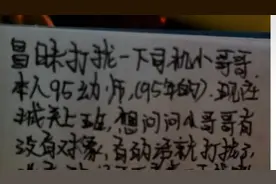 冒昧打扰一下司机小哥哥.
本人95幼师,(95年的).现在
城关上班,想问问小哥哥有
没有对象,有的话就打扰了,